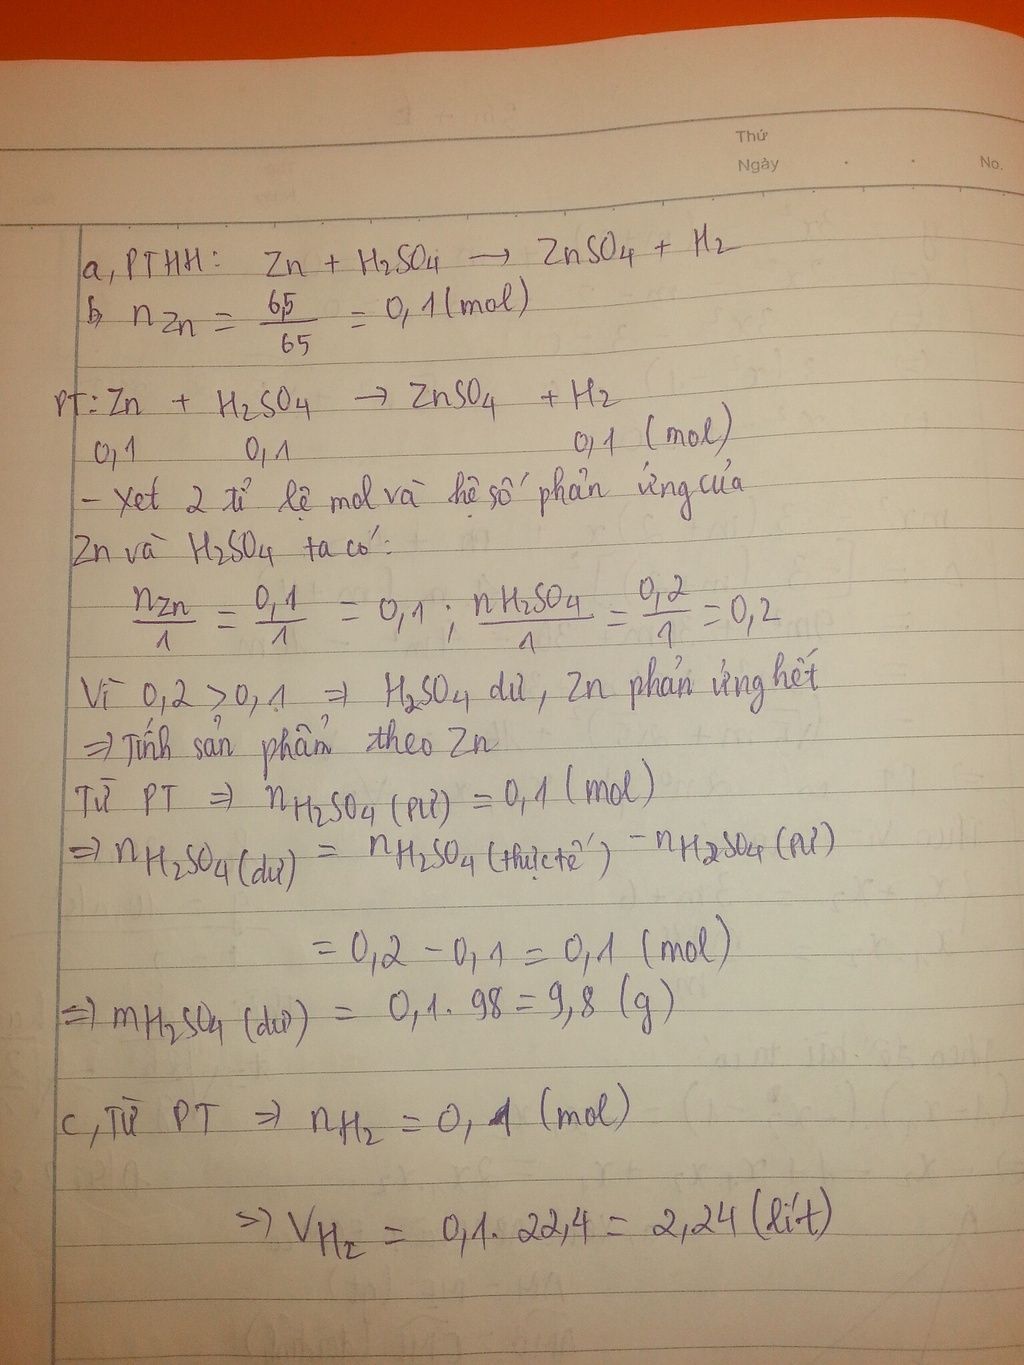 Thứ
Ngày . . No.
a, PTHH: Zn + H2SO4 → ZnSO4 + H2
b, nZn = 6,5/65 = 0,1 (mol)
PT: Zn + H2SO4 → ZnSO4 + H2
0,1 0,1 0,1 (mol)
- Xét 2 tỉ lệ mol và hệ số phản ứng của
Zn và H2SO4 ta có:
nZn/1 = 0,1/1 = 0,1 ; nH2SO4/1 = 0,2/1 = 0,2
Vì 0,2 > 0,1 ⇒ H2SO4 dư, Zn phản ứng hết
⇒ Tính sản phẩm theo Zn
Từ PT ⇒ nH2SO4 (PƯ) = 0,1 (mol)
⇒ nH2SO4 (dư) = nH2SO4 (thực tế) - nH2SO4 (PƯ)
= 0,2 - 0,1 = 0,1 (mol)
⇒ mH2SO4 (dư) = 0,1 . 98 = 9,8 (g)
c, Từ PT ⇒ nH2 = 0,1 (mol)
⇒ VH2 = 0,1 . 22,4 = 2,24 (lít)